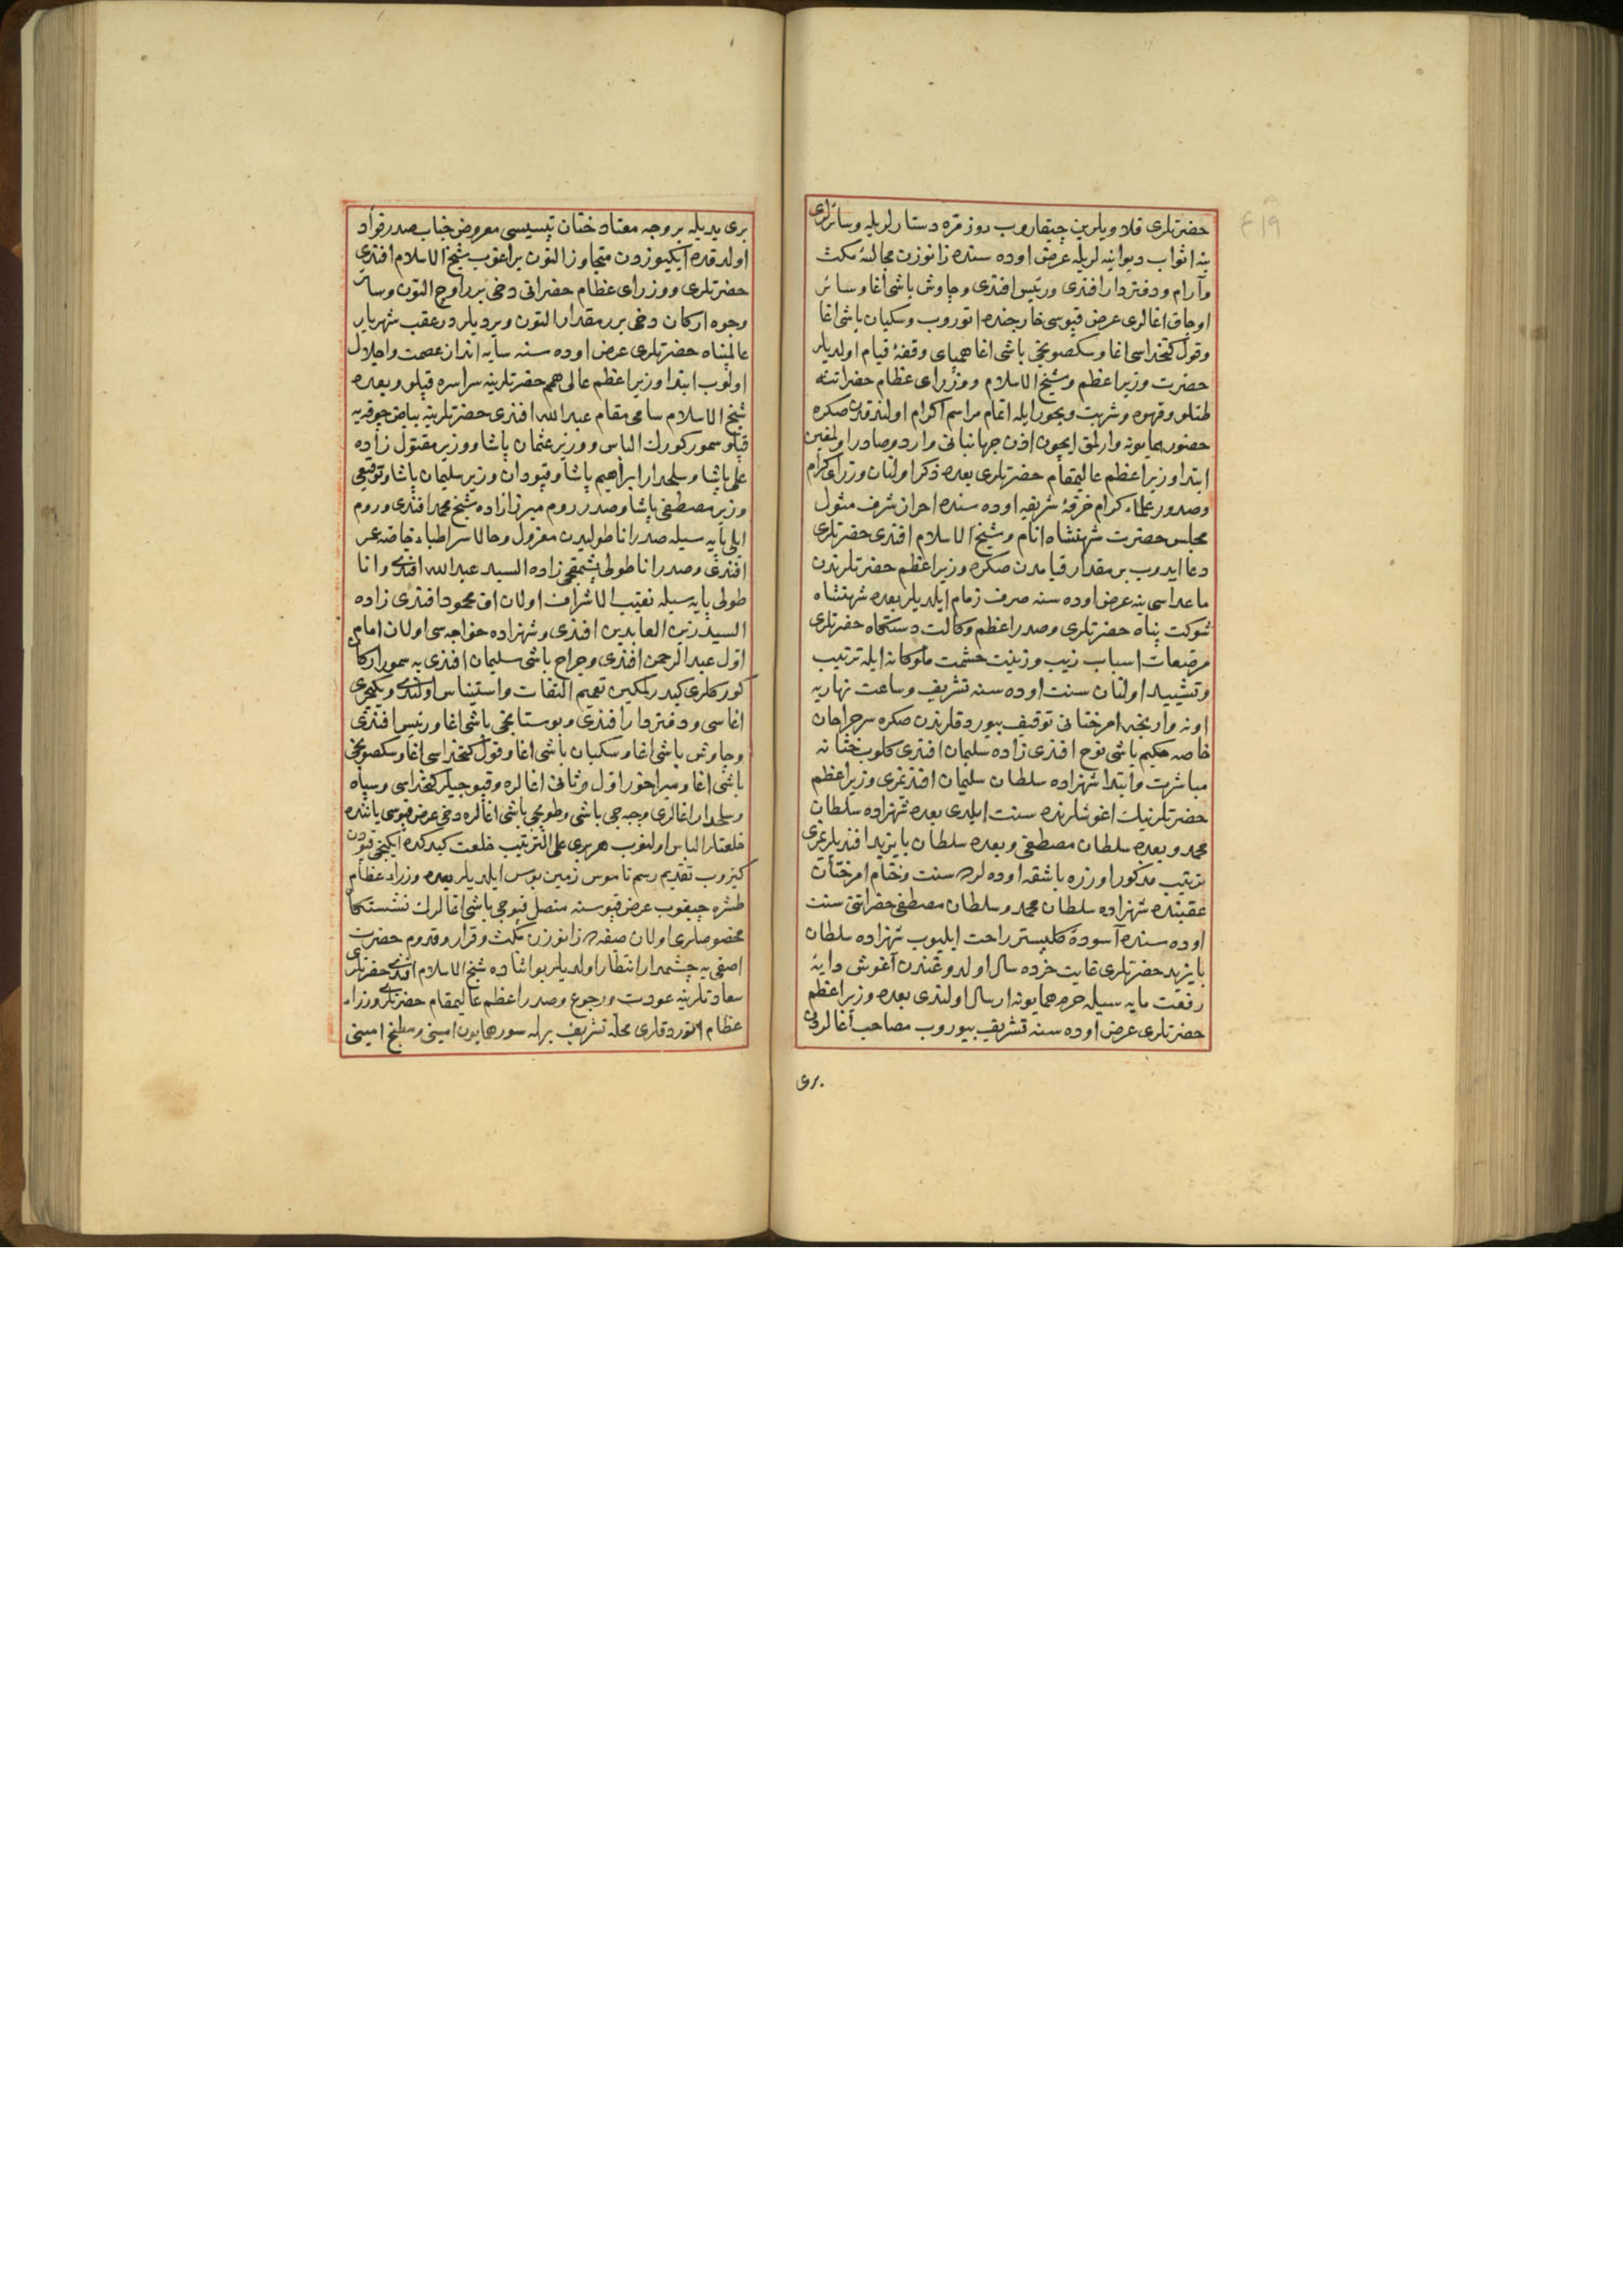 ٤١٩
حضرتلری قلاویلرین چیقاروب روزمره دستارلریله وسائرلری
ینه اثواب دیوانیه لریله عرض اوده سنده زانوزن مجالسۀ مکث
وآرام ودفتردار افندی ورئیس افندی وچاوش باشی اغا وسائر
اوجاق اغالری عرض قپوسی خارجنده اتوروب وسکبان باشی اغا
وقول کتخداسی اغا وسکصونجی باشی اغا همپای وقفۀ قیام اولدیلر
حضرت وزیر اعظم وشیخ الاسلام ووزرای عظام حضراتنه
طتلو وقهوه وشربت وبخور ایله اتمام مراسم اکرام اولندقدن صکره
حضور همایونه وارلمق ایچون اذن جهانبانی وارد وصادر اولمغین
ابتدا وزیر اعظم عالیمقام حضرتلری بعده ذکر اولنان وزرای کرام
وصدور علماء کرام خرقۀ شریفه اوده سنده احراز شرف مثول
مجلس حضرت شهنشاه انام وشیخ الاسلام افندی حضرتلری
دعا ایدوب بر مقدار قیامدن صکره وزیر اعظم حضرتلرندن
ماعداسی ینه عرض اوده سنه صرف زمام ایلدیلر بعده شهنشاه
شوکت پناه حضرتلری وصدر اعظم وکالت دستکاه حضرتلری
مرصعات اسباب زیب وزینت حشمت ملوکانه ایله ترتیب
وتشیید اولنان سنت اوده سنه تشریف وساعت نهاریه
اونه وارنجه امر ختانی توقیف بیوردقلرندن صکره سرجراحان
خاصه حکیم باشی نوح افندی زاده سلیمان افندی کلوب ختانه
مباشرت وابتدا شهزاده سلطان سلیمان افندیمزی وزیر اعظم
حضرتلرینک اغوشلرنده سنت ایلدی بعده شهزاده سلطان
محمد وبعده سلطان مصطفی وبعده سلطان بایزید افندیلرمزی
ترتیب مذکور اوزره باشقه اوده لرده سنت وختام امر ختان
عقبنده شهزاده سلطان محمد وسلطان مصطفی حضراتنی سنت
اوده سنده آسودۀ کلبستر راحت ایلیوب شهزاده سلطان
بایزید حضرتلری غایت خرده سال اولدوغندن آغوش دایۀ
رفعت مایه سیله حرم همایونه ارسال اولندی بعده وزیر اعظم
حضرتلری عرض اوده سنه تشریف بیوروب مصاحب اغالردن
بری
بری یدیله بر وجه معتاد ختان تپسیسی معروض جناب صدر قواد
اولدقده ایکیوزدن متجاوز التون براغوب شیخ الاسلام افندی
حضرتلری ووزرای عظام حضراتی دخی برر اوج التون وسائر
وجوه ارکان دخی برر مقدار التون ویردیلر در عقب شهریار
عالمپناه حضرتلری عرض اوده سنه سایه انداز عصمت واجلال
اولوب ابتدا وزیر اعظم عالی همم حضرتلرینه سراسره قپلو وبعده
شیخ الاسلام سامی مقام عبد الله افندی حضرتلرینه بیاض چوقه یه
قپلو سمور کورک الباس ووزیر عثمان پاشا ووزیر مقتول زاده
علی پاشا وسلحدار ابراهیم پاشا وقپودان وزیر سلیمان پاشا وتوقیعی
وزیر مصطفی پاشا وصدر روم میرزا زاده شیخ محمد افندی وروم
ایلی پایه سیله صدر اناطولیدن معزول وحالا سر اطباء خاصه عمر
افندی وصدر اناطولی پشمقجی زاده السید عبد الله افندی وانا
طولی پایه سیله نقیب الاشراف اولان اق محمود افندی زاده
السید زین العابدین افندی وشهزاده خواجه سی اولان امام
اول عبد الرحمن افندی وجراح باشی سلیمان افندی یه سمور ارکان
کورکلری کیدرلمکین تعمیم التفات واستیناس اولندی ویکیچری
اغاسی ودفتردار افندی وبوستانجی باشی اغا ورئیس افندی
وچاوش باشی اغا وسکبان باشی اغا وقول کتخداسی اغا وسکصونجی
باشی اغا ومیراخور اول وثانی اغالره وقپوجیلر کتخداسی وسپاه
وسلحدار اغالری وجبه جی باشی وطوپجی باشی اغالره دخی عرض قپوسی یاننده
خلعتلر الباس اولنوب هر بری علی الترتیب خلعت کیدکده ایکنجی قپودن
کیروب تقدیم رسم ناموس زمین بوس ایلدیلر بعده وزراء عظام
طشره چیقوب عرض قپوسنه متصل قپوجی باشی اغالرک نشستکاه
مخصوصلری اولان صفه ده زانوزن مکث وقرار وقدوم حضرت
اصفی یه چشمدار انتظار اولدیلر بو اثناده شیخ الاسلام افندی حضرتلری
سعادتلرینه عودت ورجوع وصدر اعظم عالیمقام حضرتلری وزراء
عظام اتوردقلری محله تشریف برله سور همایون امینی ومطبخ امینی